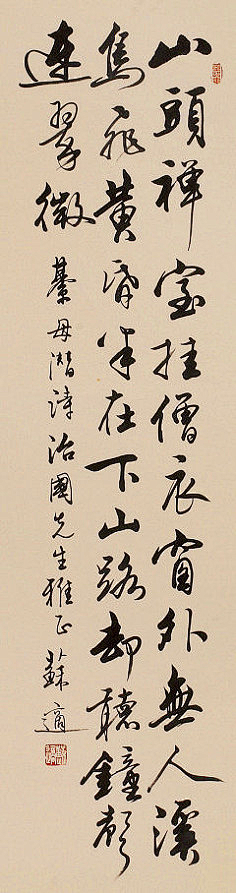 山頭禅室挂僧衣窗外無人溪
鳥飛黄昏半在下山路却聴鐘聲
連翠微
綦毋潛詩治國先生雅正蘇適